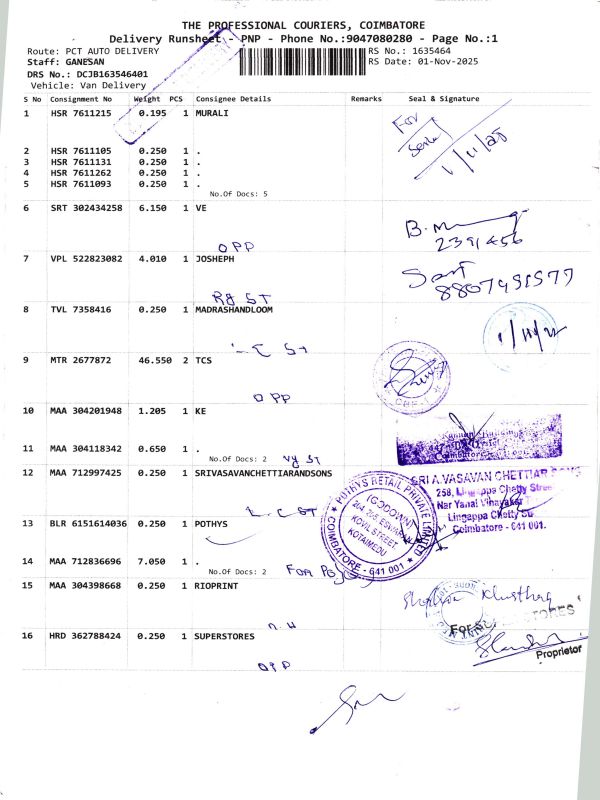 THE PROFESSIONAL COURIERS, COIMBATORE
Delivery Runsheet - PNP - Phone No.:9047080280 - Page No.:1
Route: PCT AUTO DELIVERY
RS No.: 1635464
Staff: GANESAN
RS Date: 01-Nov-2025
DRS No.: DCJB163546401
Vehicle: Van Delivery
S No Consignment No Weight PCS Consignee Details Remarks Seal & Signature
1 HSR 7611215 0.195 1 MURALI
For
1/11/25
2 HSR 7611105 0.250 1 .
3 HSR 7611131 0.250 1 .
4 HSR 7611262 0.250 1 .
5 HSR 7611093 0.250 1 .
No.Of Docs: 5
6 SRT 302434258 6.150 1 VE
2391456
OPP
7 VPL 522823082 4.010 1 JOSHEPH
8807491577
Rg ST
8 TVL 7358416 0.250 1 MADRASHANDLOOM
L C St
9 MTR 2677872 46.550 2 TCS
OPP
10 MAA 304201948 1.205 1 KE
11 MAA 304118342 0.650 1 .
No.Of Docs: 2 vy ST
12 MAA 712997425 0.250 1 SRIVASAVANCHETTIARANDSONS
SRI A.VASAVAN CHETTIAR SONS
258, Lingappa Chetty Street
Nar Yanai Vinayakar
Lingappa Chetty
Coimbatore - 641 001.
L. C ST
POTHYS RETAIL PRIVATE LIMITED
(GODOWN)
KOVIL STREET,
KOTAIMEDU
COIMBATORE - 641 001
13 BLR 6151614036 0.250 1 POTHYS
14 MAA 712836696 7.050 1 .
No.Of Docs: 2
15 MAA 304398668 0.250 1 RIOPRINT
n. H
16 HRD 362788424 0.250 1 SUPERSTORES
Proprietor
OPP